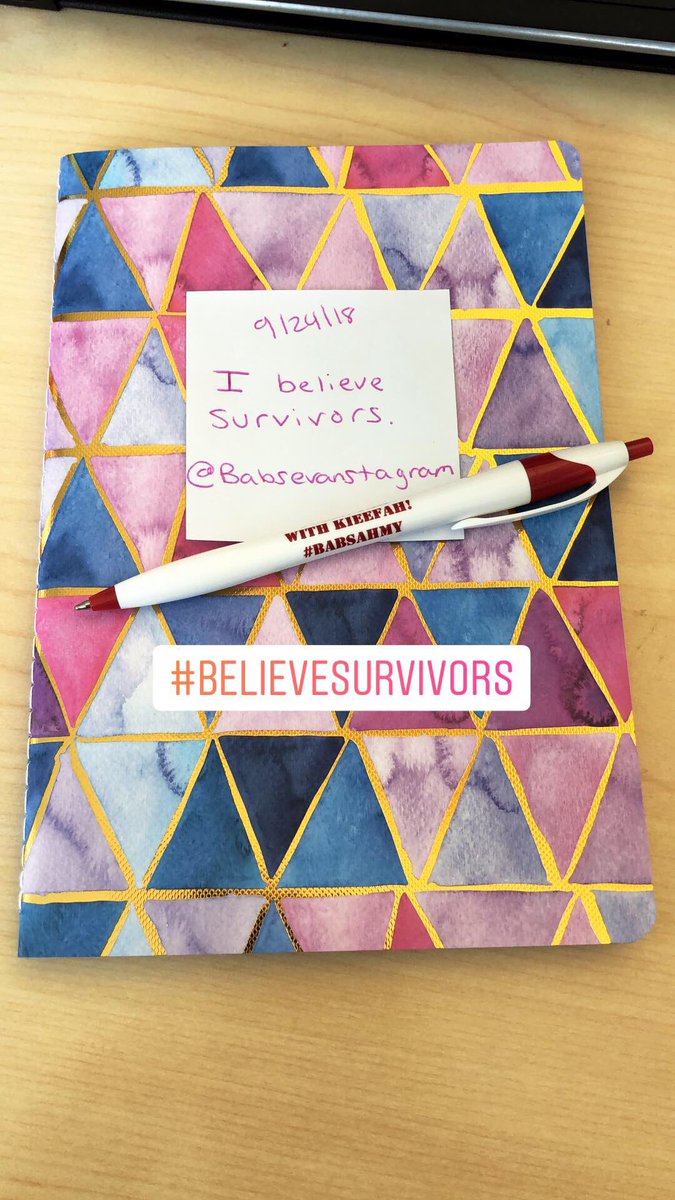 9/24/18
I believe
survivors.
@Babsevanstagram
WITH KIEEFAH!
#BABSAHMY
#BELIEVESURVIVORS